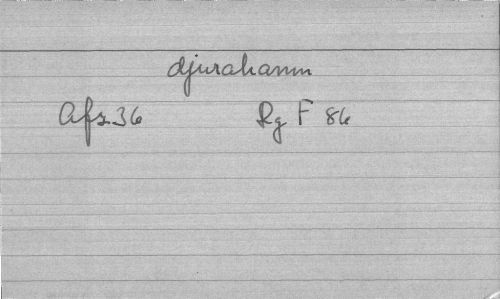 djurahamn
Afz 36 Rg F 86